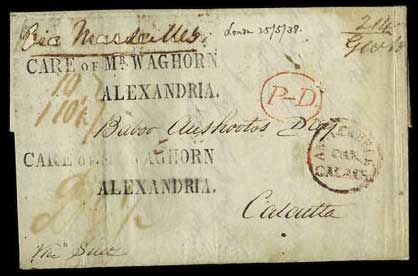 Via Marseilles.
London 25/5/38.
CARE OF MR WAGHORN
ALEXANDRIA.
P-D
Baboo Aushootos Day
CARE OF MR WAGHORN
ALEXANDRIA.
PAR
CALAIS
Calcutta
Via Suez